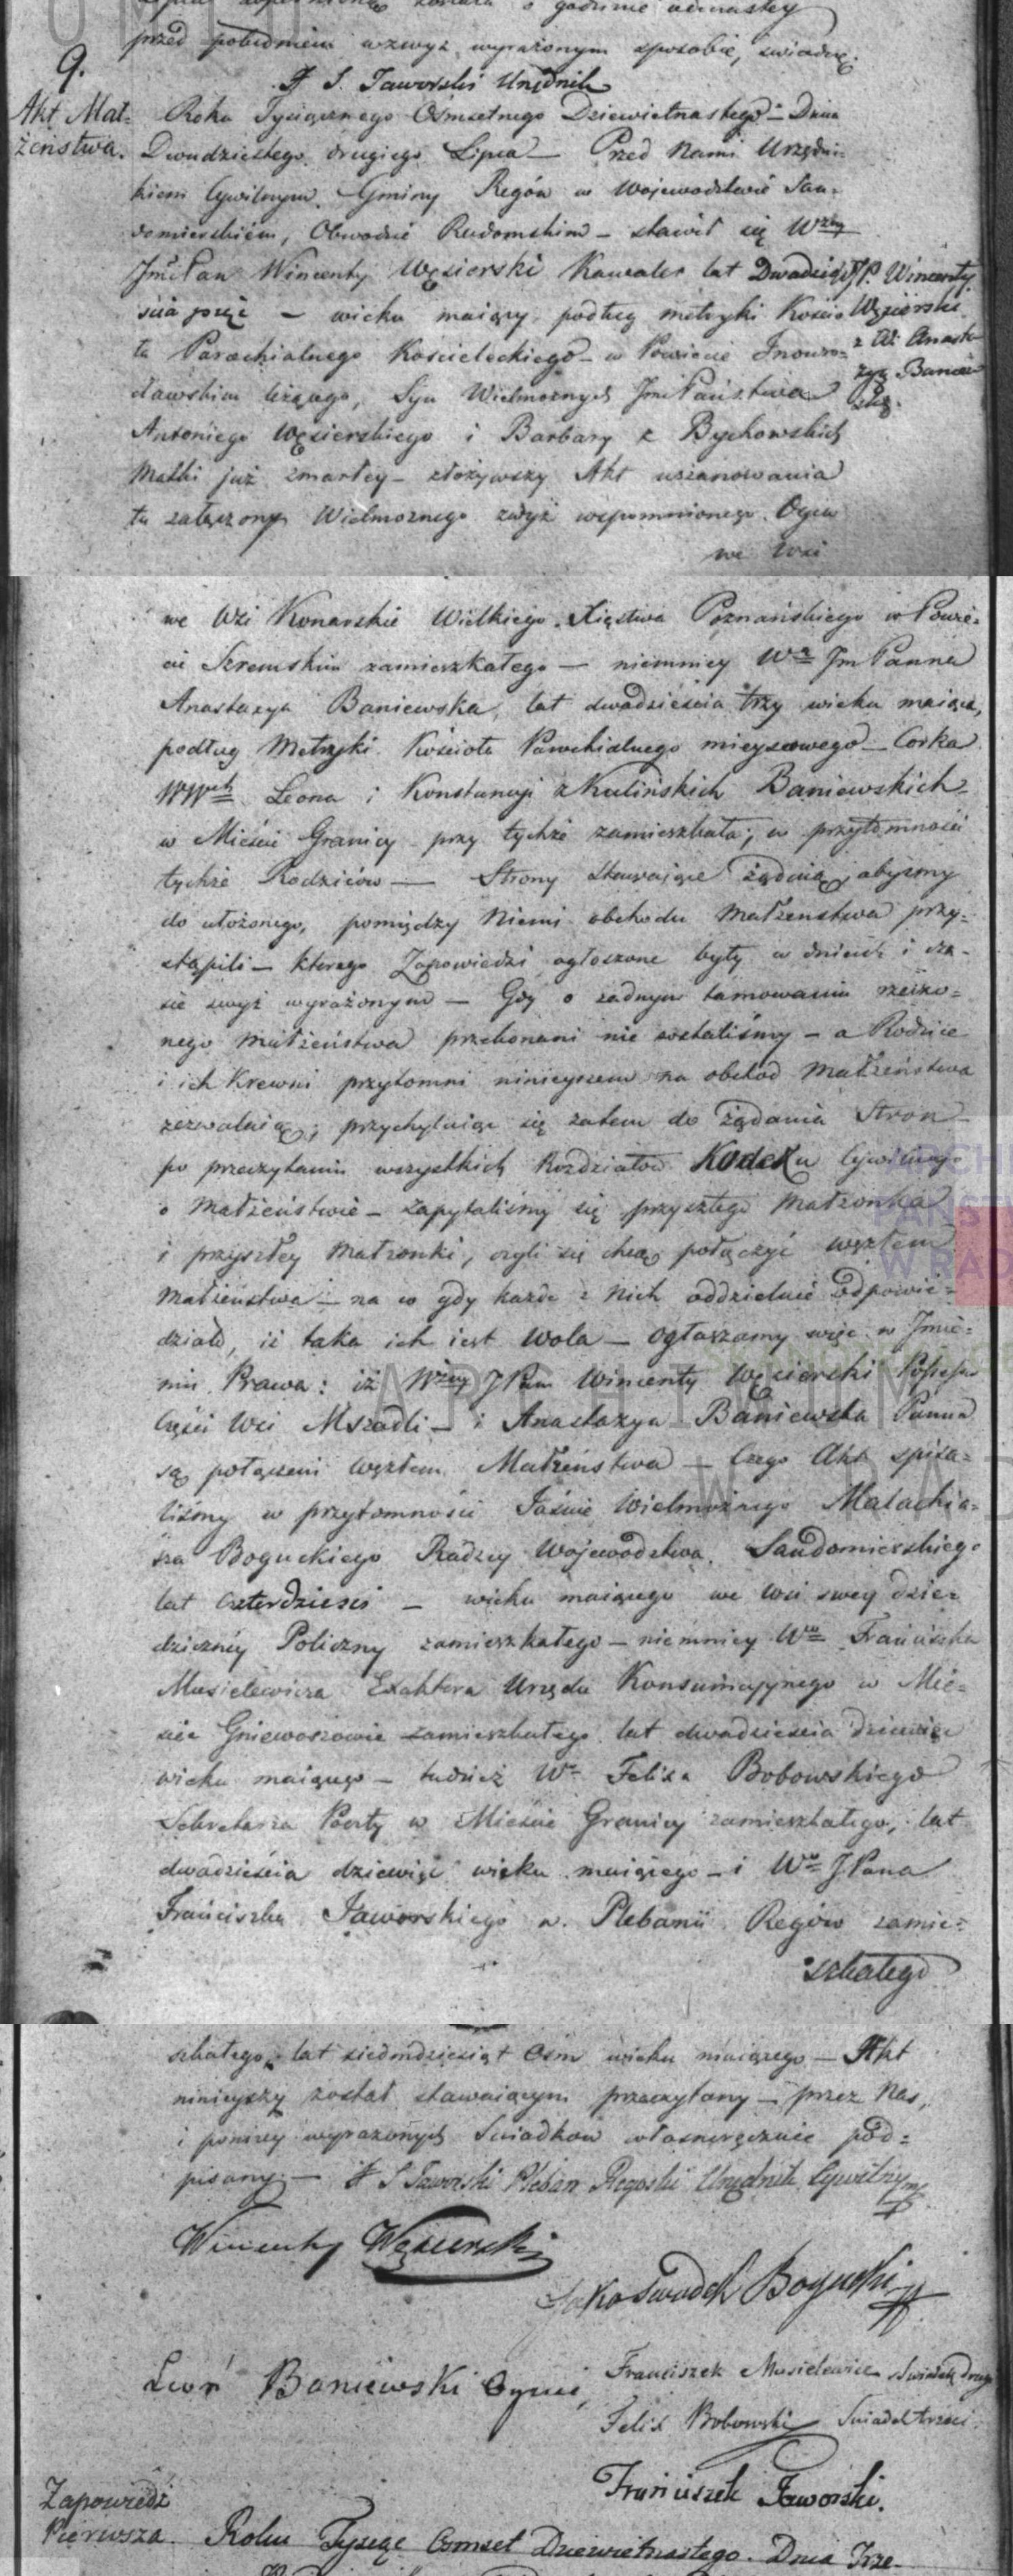 przed południem wzwyż wyrażonym sposobie, świadczę.
X S. Jaworski Urzędnik
9.
Akt Mał-
żeństwa.
Roku Tysiącznego Ośmsetnego Dziewiętnastego – Dnia
Dwudziestego drugiego Lipca – Przed Nami Urzędni-
kiem Cywilnym Gminy Regów w Wojewodztwie San-
domierskiém, Obwodzie Radomskim – stawił się Wżny
JmcPan Wincenty Węsierski Kawaler lat Dwadzie-
ścia pięć – wieku maiący, podług metryki Kościo
ła Parochialnego Kościeleckiego – w Powiecie Inowro-
cławskim leżącego, Syn Wielmożnych JmcPaństwa
Antoniego Węsierskiego i Barbary z Bychowskich
Matki już zmarłey – złożywszy Akt uszanowania
tu załączony Wielmożnego zwyż wspomnionego Oyca
we Wsi
JP. Wincenty
Węsierski
z W. Anasta
zyą Baniew
ską.
we Wsi Konarskie Wielkiego Xięstwa Poznańskiego w Powie-
cie Szremskim zamieszkałego – niemniey Wa Jm Panna
Anastazya Baniewska, lat dwadzieścia trzy wieku maiąca,
podług Metryki Kościoła Parochialnego mieyscowego – Corka
WWch Leona i Konstancyi z Kulińskich Baniewskich
w Mieście Granicy przy tychże zamieszkała; w przytomności
tychże Rodziców – Strony stawaiące żądaią, abyśmy
do ułożonego, pomiędzy Niemi obchodu Małżeństwa przy-
stąpili – ktorego Zapowiedzi ogłoszone były w dniach i cza-
sie zwyż wyrażonym – Gdy o żadnym tamowaniu rzeczo-
nego Małżeństwa przekonani nie zostaliśmy – a Rodzice
i ich Krewni przytomni ninieyszem na obchod Małżeństwa
zezwalaią; przychylaiąc się zatem do żądania Stron
po przeczytaniu wszystkich Rozdziałow Kodexu Cywilnego
o Małżeństwie – zapytaliśmy się przyszłego Małżonka
i przyszłey Małżonki, czyli się chcą połączyć węzłem
Małżeństwa – na co gdy każde z Nich oddzielnie odpowie-
działo, iż taka ich iest Wola – ogłaszamy więc w Jmie-
niu Prawa: iż Wżny JPan Wincenty Węsierski Possessor
Części Wsi Mszadli – i Anastazya Baniewska Panna
są połączeni węzłem Małżeństwa – Czego Akt spisa-
liśmy w przytomności Jaśnie Wielmożnego Malachia-
sza Boguckiego Radzcy Wojewodztwa Sandomierskiego
lat czterdzieści – wieku maiącego we wsi swey dzie-
dziczney Policzny zamieszkałego – niemniey Wo Franciszka
Musielewicza Exaktora Urzędu Konsumcyjnego w Mie-
ście Gniewoszowie zamieszkałego lat dwadzieścia dziewięć
wieku maiącego – tudzież Wo Felixa Bobowskiego
Sekretarza Poczty w Mieście Granicy zamieszkałego, lat
dwadzieścia dziewięć wieku maiącego – i Wo JPana
Franciszka Jaworskiego w Plebanii Regów zamie-
szkałego
szkałego, lat siedmdziesiąt Ośm wieku maiącego – Akt
ninieyszy został stawaiącym przeczytany – przez Nas,
i poniżey wyrażonych Swiadkow własnoręcznie pod-
pisany – X S Jaworski Pleban Regoski Urzędnik Cywilny
Wincenty Węsierski
Jako Swiadek Bogucki
Leon Baniewski Oyciec,
Franciszek Musielewicz Swiadek drugi
Felix Bobowski Swiadek trzeci
Franciszek Jaworski.
Zapowiedź
Pierwsza.
Roku Tysiąc Osmset Dziewiętnastego. Dnia Trze-